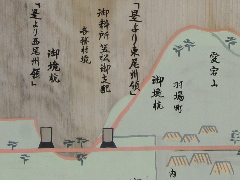 愛宕山
羽場町
御境杭
「是より東尾州領」
御料所 笠松御支配
各務村境
御境杭
「是より西尾州領」
内